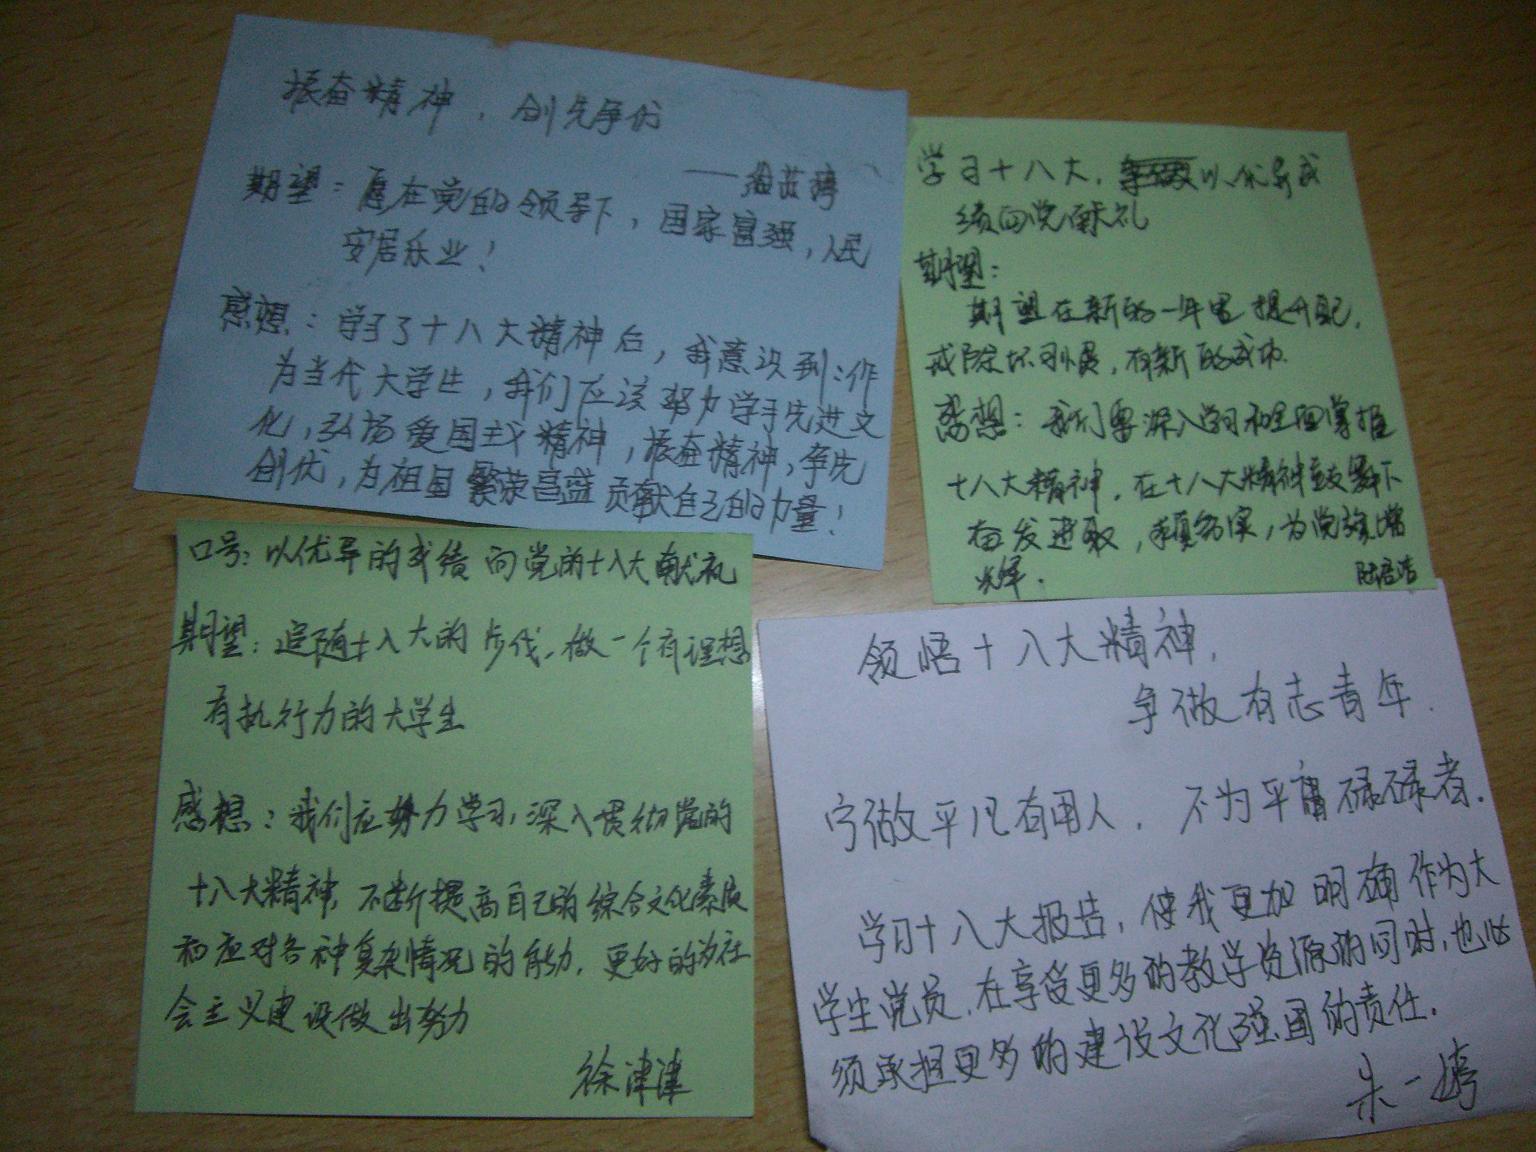 振奋精神，创先争优
期望：愿在党的领导下，国家富强，人民
安居乐业！
感想：学习了十八大精神后，我意识到：作
为当代大学生，我们应该努力学习先进文
化，弘扬爱国主义精神，振奋精神，争先
创优，为祖国繁荣昌盛贡献自己的力量！
学习十八大，以优异成
绩向党献礼
期望：
期望在新的一年里提升自己，
戒除坏习惯，有新的成功.
感想：我们要深入学习和全面掌握
十八大精神，在十八大精神鼓舞下
奋发进取，求真务实，为党旗增
光辉.
口号：以优异的成绩向党的十八大献礼
期望：追随十八大的步伐，做一个有理想
有执行力的大学生
感想：我们应努力学习，深入贯彻党的
十八大精神，不断提高自己的综合文化素质
和应对各种复杂情况的能力，更好的为社
会主义建设做出努力
徐津津
领悟十八大精神，
争做有志青年.
宁做平凡有用人，不为平庸碌碌者.
学习十八大报告，使我更加明确作为大
学生党员，在享受更多的教学资源的同时，也必
须承担更多的建设文化强国的责任.
朱一婷